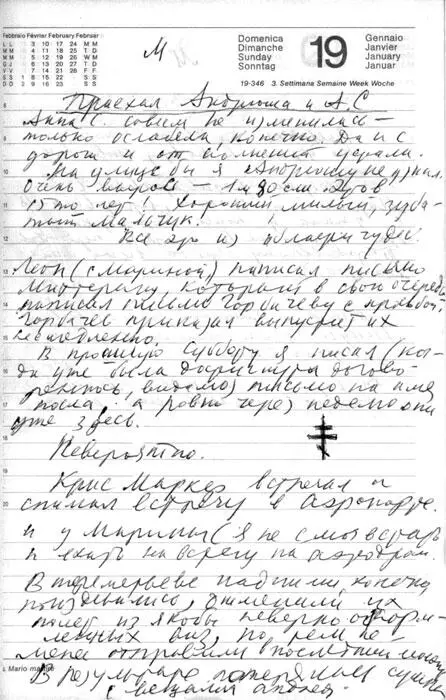 Febbraio Février February Februar
L L 3 10 17 24 M M
M M 4 11 18 25 T D
M M 5 12 19 26 W M
G J 6 13 20 27 T D
V V 7 14 21 28 F F
S S 1 8 15 22 S S
D D 2 9 16 23 S S
М
Domenica
Dimanche
Sunday
Sonntag
19
Gennaio
Janvier
January
Januar
19-346 3. Settimana Semaine Week Woche
Приехал Андрюша и А.С
Анна С. совсем не изменилась —
только ослабела, конечно. Да и с
дороги и от волнений устали.
На улице бы я Андрюшу не узнал.
Очень вырос — 1 м 80 см. в
15 то лет! Хороший милый,
мальчик!
Все это из области чудес.
Леон (с Мариной) написал письмо
Миттерану, который в свою очередь
написал письмо Горбачеву с просьбой.
Горбачев приказал выпустить их
немедленно.
В прошлую субботу я писал (ког-
да уже была договорен-
видимо) письмо на имя
посла, а ровно через неделю они
уже здесь.
Невероятно.
Крис Маркер встречал и
снимал встречу в аэропорте.
и у Марины (я не смог встать
и ехать на встречу на аэродром.
В Шереметьеве, конечно
поиздевались, отменили их
полет из якобы неверно оформ-
ленных виз, но тем не
менее отправили
В результате потеряли
с вещами
Mario